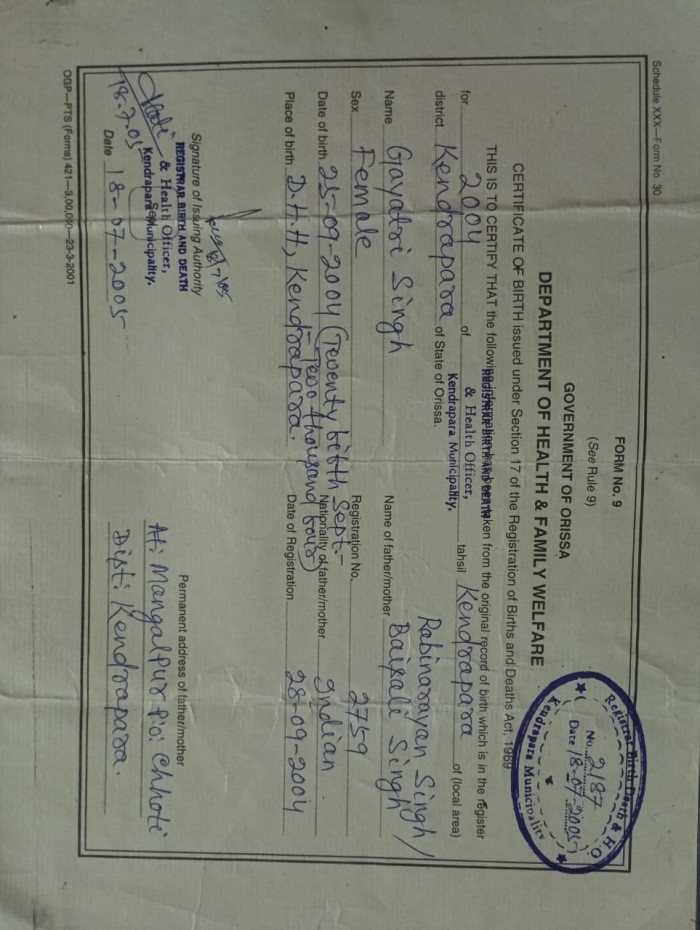 Schedule XXX—Form No. 30
FORM No. 9
(See Rule 9)
GOVERNMENT OF ORISSA
DEPARTMENT OF HEALTH & FAMILY WELFARE
CERTIFICATE OF BIRTH issued under Section 17 of the Registration of Births and Deaths Act, 1969
Registrar Birth Death & H.O.
No. 2187
Date 18-07-2005
Kendrapara Municipality
THIS IS TO CERTIFY THAT the following information has been taken from the original record of birth which is in the register
REGISTRAR BIRTH AND DEATH
& Health Officer,
Kendrapara Municipality.
for 2004 of tahsil Kendrapara of (local area)
district Kendrapara of State of Orissa.
Name Gayatri Singh Name of father/mother Rabinarayan Singh/
Baisali Singh
Sex Female Registration No. 2759
Date of birth 25-09-2004 (Twenty bifth Sept.- Nationality of father/mother Indian
Two thousand four)
Place of birth D.H.H, Kendrapara. Date of Registration 28-09-2004
Signature of Issuing Authority
REGISTRAR BIRTH AND DEATH
& Health Officer,
Kendrapara Municipality.
18.7.05
Date 18-07-2005
Permanent address of father/mother
At: Mangalpur P.o: Chhoti
Dist: Kendrapara.
OGP—PTS (Forms) 421—3,00,000—23-3-2001